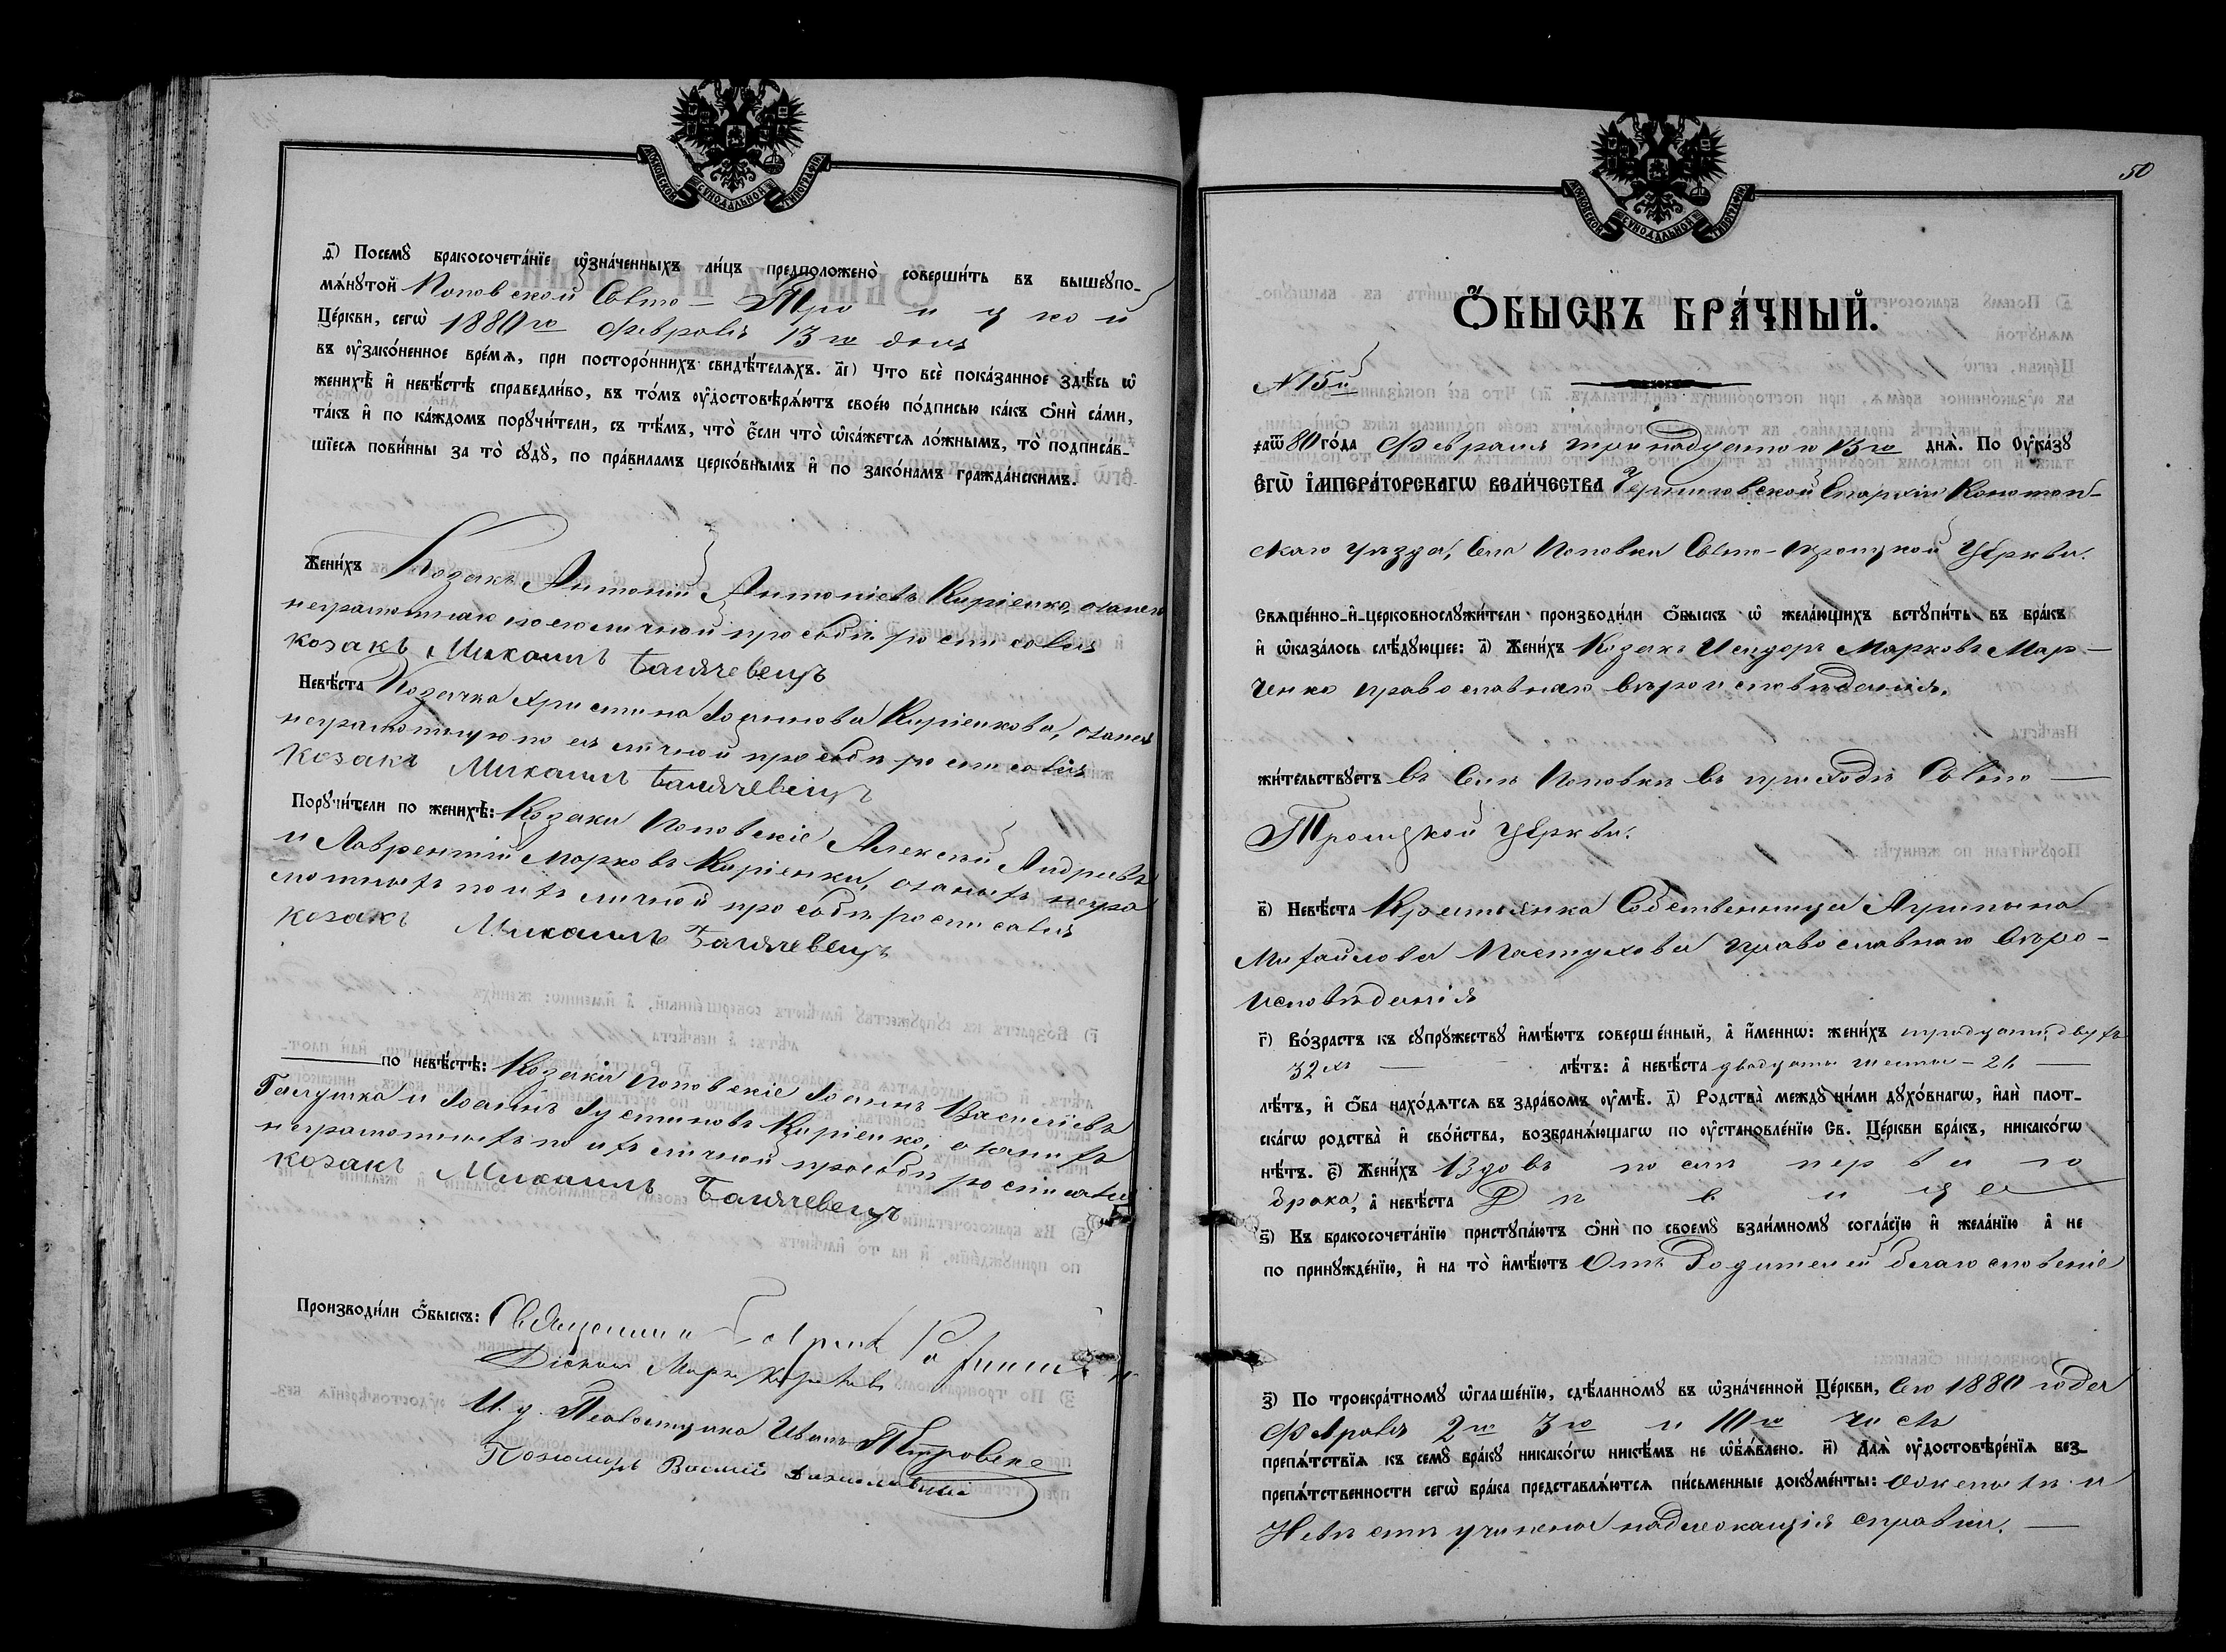 МОСКОВСКОЙ СѴНОДАЛЬНОЙ ТИПОГРАФІИ
і҃) Посемꙋ̀ бракосочета́нїе ѡ҆зна́ченныхъ ли́цъ предположено̀ соверши́ть въ вышеꙋпо-
мѧ́нꙋтой Поповской Свято-Троицкой
Це́ркви, сегѡ̀ 1880го Февраля 13го дня
въ ᲂу҆зако́ненное вре́мѧ, при посторо́ннихъ свидѣ́телѧхъ. а҃і) Что всѐ пока́занное здѣ́сь ѡ҆
женихѣ̀ и҆ невѣ́стѣ справедли́во, въ то́мъ ᲂу҆достовѣрѧ́ютъ свое́ю по́дписью ка́къ ѻ҆нѝ са́ми,
та́къ и҆ по ка́ждомъ порꙋчи́тели, съ тѣ́мъ, что̀ є҆́сли что̀ ѡ҆ка́жетсѧ ло́жнымъ, то̀ подписа́в-
шїесѧ пови́нны за то̀ сꙋдꙋ̀, по пра́виламъ церко́внымъ и҆ по зако́намъ гражда́нскимъ.
Жени́хъ Козакъ Антоній Антоніевъ Киріенко, а за него
неграмотнаго по его личной просьбѣ росписався
козакъ Михаилъ Балячевецъ
Невѣ́ста Козачка Христина Іоаннова Киріенкова, а за нея
неграмотную по ея личной просьбѣ росписався
Козакъ Михаилъ Балячевецъ
Порꙋчи́тели по женихѣ̀: Козаки Поповскіе Алексѣй Андреевъ
и Лаврентій Марковъ Киріенки, а за ныхъ негра
мотныхъ по ихъ личной просьбѣ росписався
Козакъ Михаилъ Балячевецъ
по невѣ́стѣ: Козаки Поповскіе Іоаннъ Василіевъ
Галушка и Іоаннъ Іустиновъ Киріенко, а за нихъ
неграмотныхъ по ихъ личной просьбѣ росписався
козакъ Михаилъ Балячевецъ
Производи́ли ѻ҆́быскъ: Священникъ
Діаконъ Марко
И. д. Псаломщика Иванъ Петровскій
Пономарь Василій
50
МОСКОВСКОЙ СѴНОДАЛЬНОЙ ТИПОГРАФІИ
Ѻ҆́БЫСКЪ БРА́ЧНЫЙ.
N 15й
҂аѿ80 го́да Февраля тринадцатого 13го днѧ̀. По Оу҆ка́зꙋ
Є҆ГѠ̀ І҆МПЕРА́ТОРСКАГѠ ВЕЛИ́ЧЕСТВА Черниговской Епархіи Конотоп-
скаго уѣзда, Села Поповки Свято-Троицкой Церкви.
Свѧще́нно-и҆-церковнослꙋжи́тели производи́ли ѻ҆́быскъ ѡ҆ жела́ющихъ встꙋпи́ть въ бра́къ
и҆ ѡ҆каза́лось слѣ́дꙋющее: а҃) Жени́хъ Козакъ Исидоръ Марковъ Мар-
ченко православнаго вѣроисповѣданія,
жи́тельствꙋетъ въ селѣ Поповкѣ въ приходѣ Свято
Троицкой Церкви.
в҃) Невѣ́ста Крестьянка Собственница Агрипина
Михайлова Пастухова православнаго вѣро-
исповѣданія
г҃) Во́зрастъ къ сꙋпрꙋжествꙋ и҆мѣ́ютъ соверше́нный, а҆ и҆́меннѡ: жени́хъ тридцати двухъ
32хъ лѣ́тъ: а҆ невѣ́ста двадцати шести - 26
лѣ́тъ, и҆ ѻ҆́ба нахо́дѧтсѧ въ здра́вомъ ᲂу҆мѣ̀. д҃) Родства̀ междꙋ̀ ни́ми дꙋхо́внагѡ, и҆лѝ плот-
ска́гѡ родства̀ и҆ сво́йства, возбранѧ́ющагѡ по ᲂу҆становле́нїю Св. Це́ркви бра́къ, никако́гѡ
нѣ́тъ. є҃) Жени́хъ Вдовъ послѣ первого
брака, а҆ невѣ́ста Дѣвица
ѕ҃) Къ бракосочета́нїю пристꙋпа́ютъ ѻ҆нѝ по своемꙋ̀ взаи́мномꙋ согла́сїю и҆ жела́нїю а҆ не
по принꙋжде́нїю, и҆ на то̀ и҆мѣ́ютъ Отъ Родителей благословеніе
з҃) По троекра́тномꙋ ѡ҆глаше́нїю, сдѣ́ланномꙋ въ ѡ҆зна́ченной Це́ркви, сего 1880 года
Февраля 2го 3го и 10го числъ
препѧ́тствїѧ къ семꙋ̀ бра́кꙋ никако́гѡ никѣ́мъ не ѡ҆б̾ѧ́влено. и҃) Длѧ̀ ᲂу҆достовѣре́нїѧ без-
препѧ́тственности сегѡ̀ бра́ка представлѧ́ютсѧ пи́сьменные докꙋме́нты: о женихѣ и
Невѣстѣ учинена надлежащія справки.